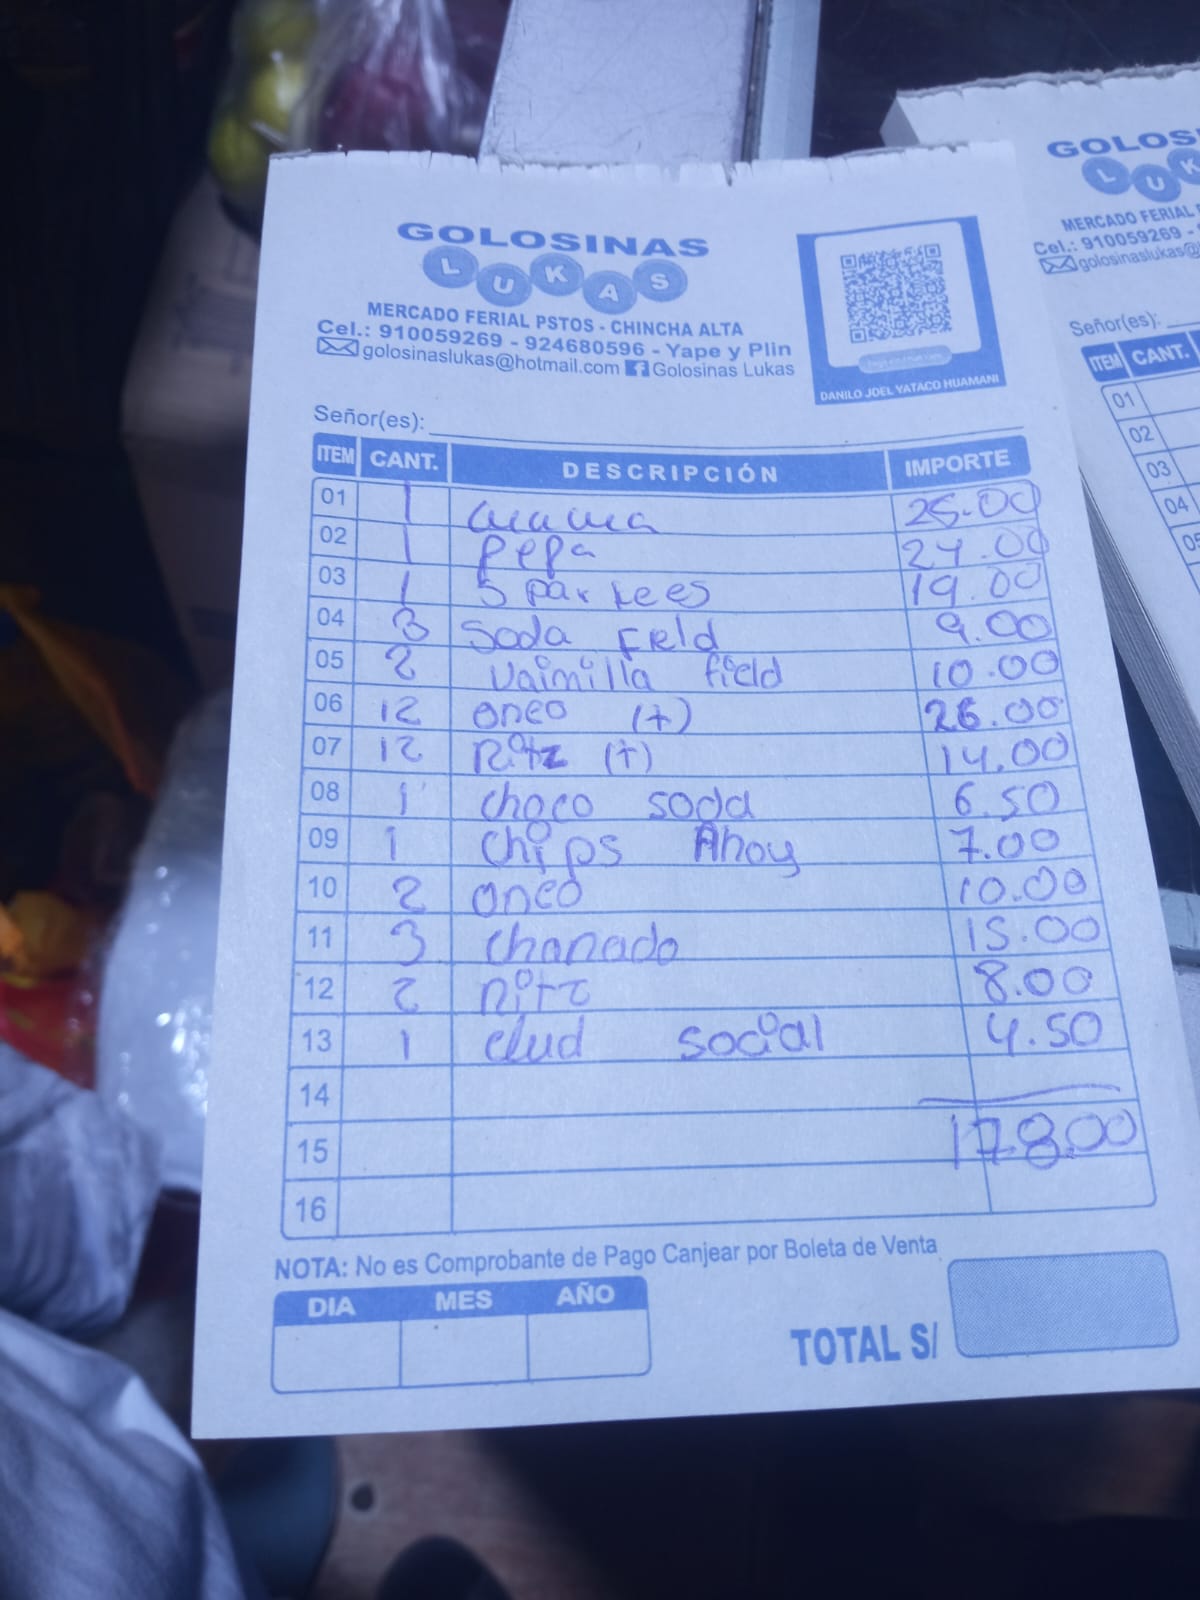 GOLOSINAS
LUKAS
MERCADO FERIAL PSTOS - CHINCHA ALTA
Cel.: 910059269 - 924680596 - Yape y Plin
golosinaslukas@hotmail.com Golosinas Lukas
DANILO JOEL YATACO HUAMANI
Señor(es):
ITEM CANT. DESCRIPCIÓN IMPORTE
01 1 25.00
02 1 pepa 24.00
03 1 5 par kees 19.00
04 3 Soda Field 9.00
05 2 Vaimilla field 10.00
06 12 oreo (+) 26.00
07 12 Ritz (+) 14.00
08 1 choco soda 6.50
09 1 chips Ahoy 7.00
10 2 oreo 10.00
11 3 chanado 15.00
12 2 ritz 8.00
13 1 clud social 4.50
14
15 178.00
16
NOTA: No es Comprobante de Pago Canjear por Boleta de Venta
DIA MES AÑO
TOTAL S/
GOLOS
LUK
MERCADO FERIAL
Cel.: 910059269 -
golosinaslukas@
Señor(es):
ITEM CANT.
01
02
03
04
05